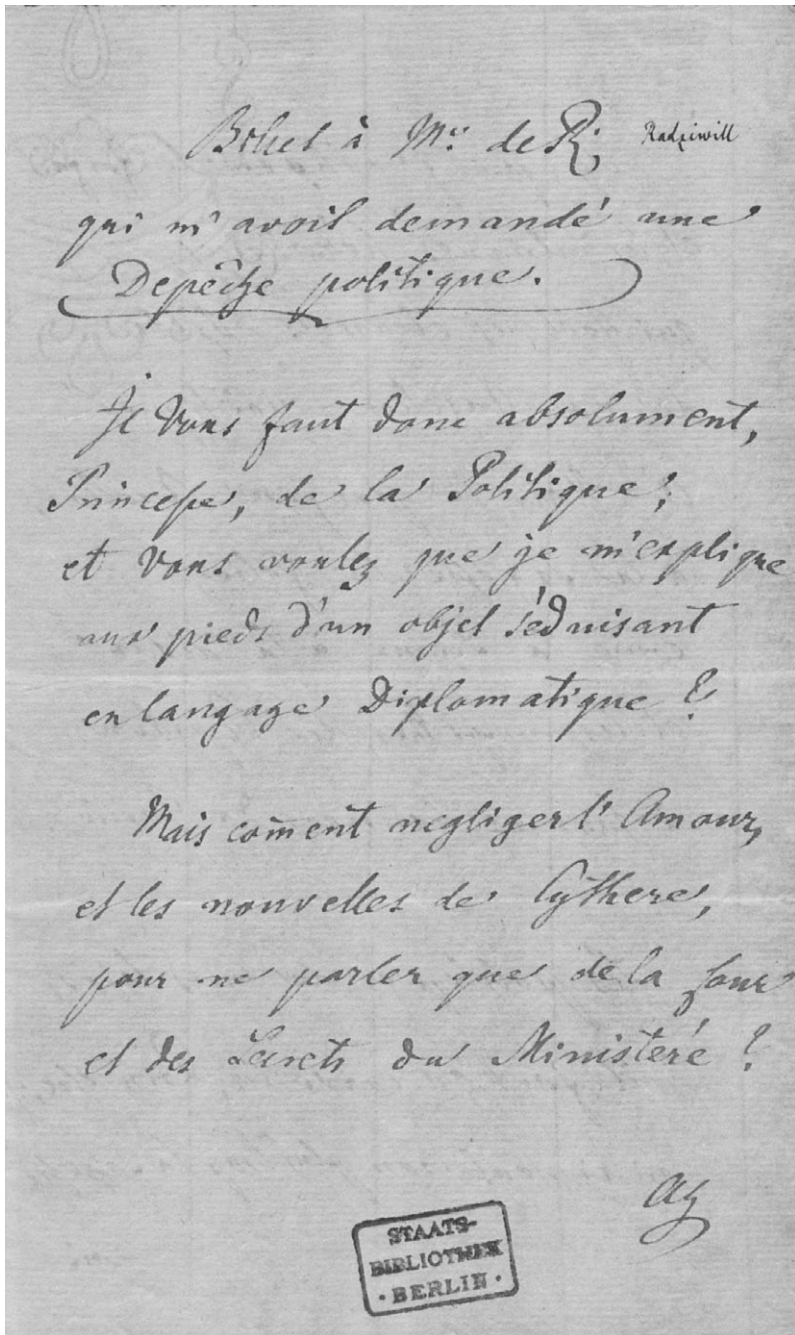 Billet à Me. de R. Radziwill
qui m'avoit demandé une
Depêche politique.
Il vous faut donc absolument,
Princesse, de la Politique;
et vous voulez que je m'explique
aux pieds d'un objet séduisant
en langage Diplomatique?
Mais com̄ent negliger l'Amour,
et les nouvelles de Cythere,
pour ne parler que de la Cour
et des Secrets du Ministére?
STAATS-
BIBLIOTHEK
· BERLIN ·